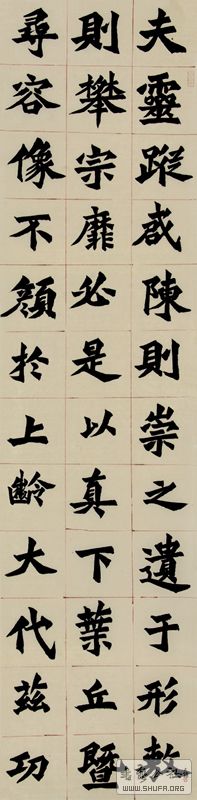 夫靈蹤咸陳則崇之遺于形
則攀宗靡必是以真下葉丘暨
尋容像不顏於上齡大代茲功
WWW.SHUFA.ORG